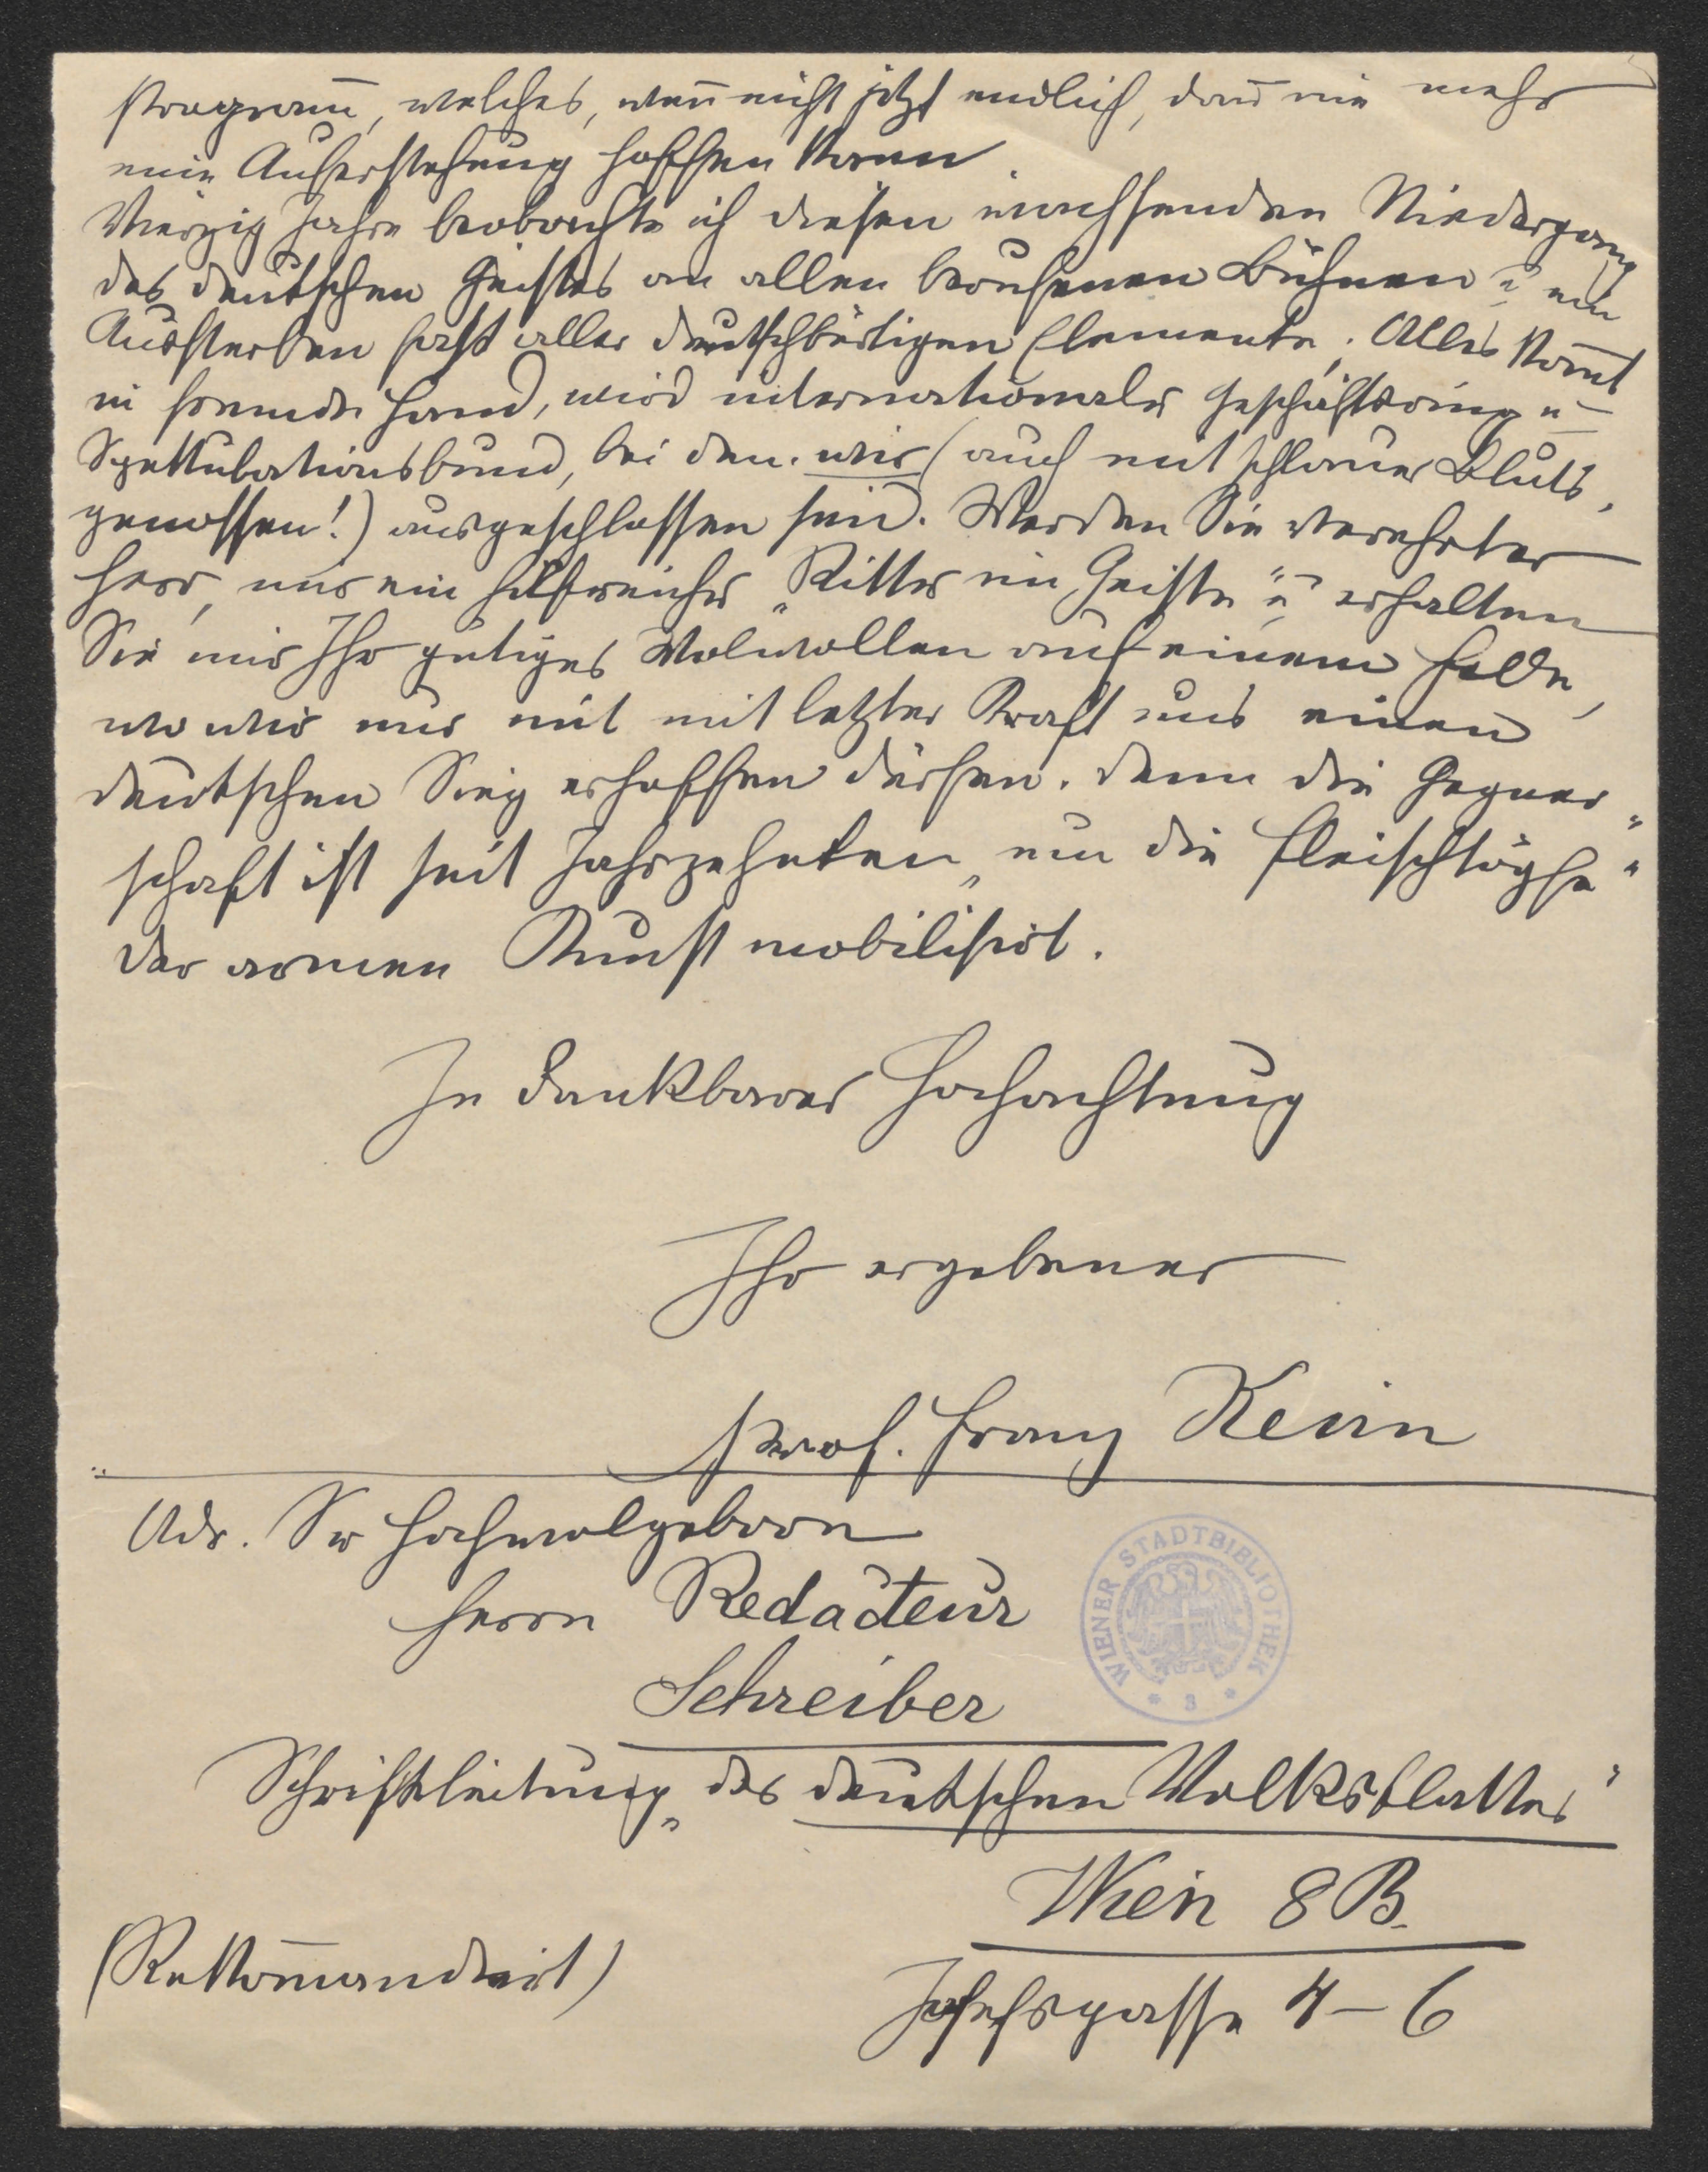 Programm̄, welches, wen̄ nicht jetzt endlich, dan̄ nie mehr
eine Auferstehung hoffen kann.
Vierzig Jahre beobachte ich diesen wachsenden Niedergang
des deutschen Geistes an allen berufenen Bühnen u. ein
Aussterben fast aller deutschbürtigen Elemente. Alles kom̄t
in fremde Hand, wird internationaler Geschäftsring u
Spekkulationsbund, bei dem wir (auch mit schlauer Bluts
genossen!) ausgeschlossen sind. Werden Sie verehrter
Herr, uns ein hilfreicher „Ritter im Geiste" u. erhalten
Sie mir Ihr gütiges Wolwollen auf einem Felde,
wo wir nur mit mit letzter Kraft uns einen
deutschen Sieg erhoffen dürfen. Denn die Gegner
schaft ist seit Jahrzehnten „um die Fleischtöpfe"
der armen Kunst mobilisirt.
In dankbarer Hochachtung
Ihr ergebener
Prof. Franz Keim
Adr. Sr Hochwolgeborn
Herrn Redacteur
Schreiber
Schriftleitung „des deutschen Volksblattes"
WIENER STADTBIBLIOTHEK
* 3 *
Wien 8 B.
(Rekkom̄andirt)
Josefsgasse 4–6